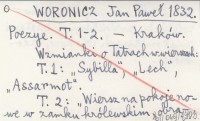 WORONICZ Jan Paweł 1832.
Poezye. T. 1-2. — Kraków.
Wzmianki o Tatrach w wierszach:
T. 1: „Sybilla", „Lech",
„Assarmot".
T. 2: „Wiersz na pokoje no-
we w zamku królewskim